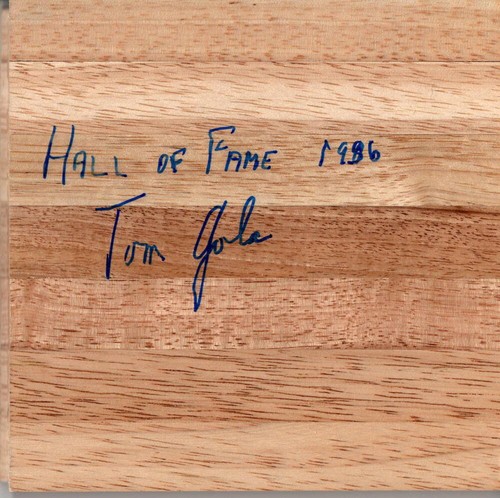 Hall of Fame 1986
Tom Gola